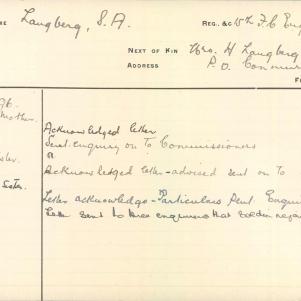 Langberg, S. A. REG. &C 15th F. C. Eng
NEXT OF KIN Mrs. H Langberg
ADDRESS P.O. Commis
96.
Mother.
Acknowledged letter
Sent enquiry on to Commissioners
Acknowledged letter - advised sent on to
Sister
Letter acknowledge - Particulars sent Enqui
Letter sent to three enquirers that soldier